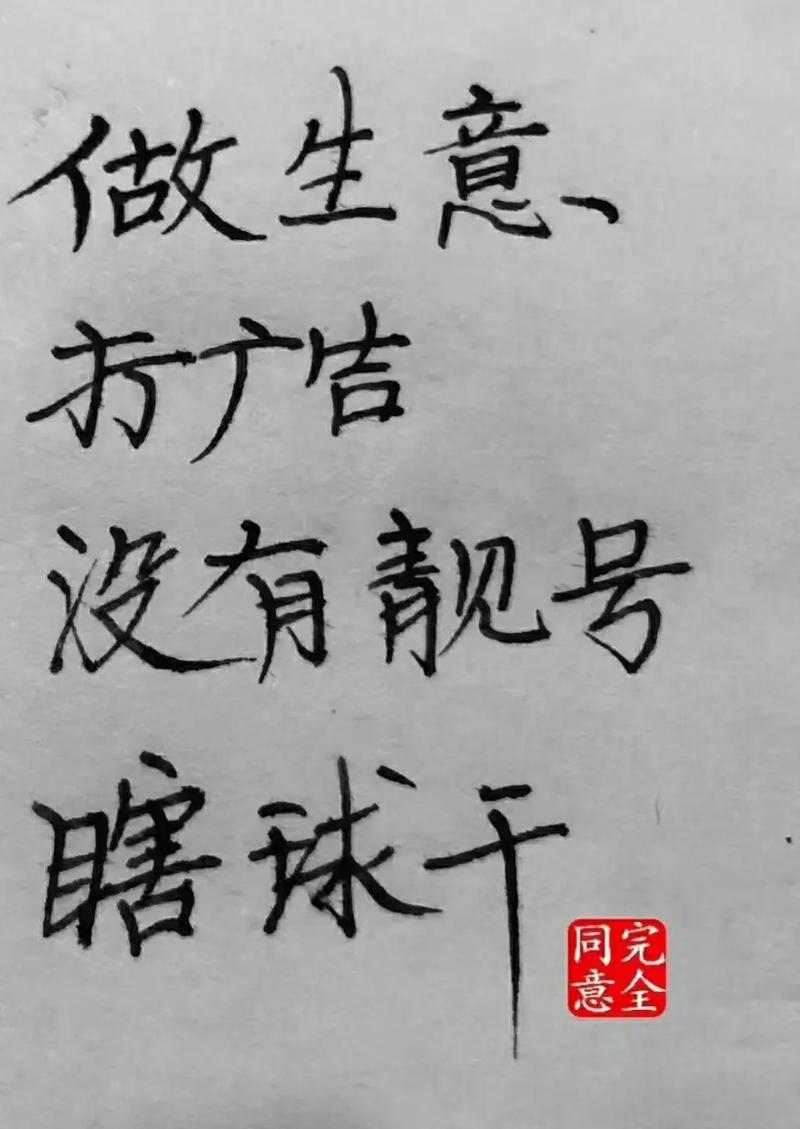 做生意、
打广告
没有靓号
瞎球干
完全
同意